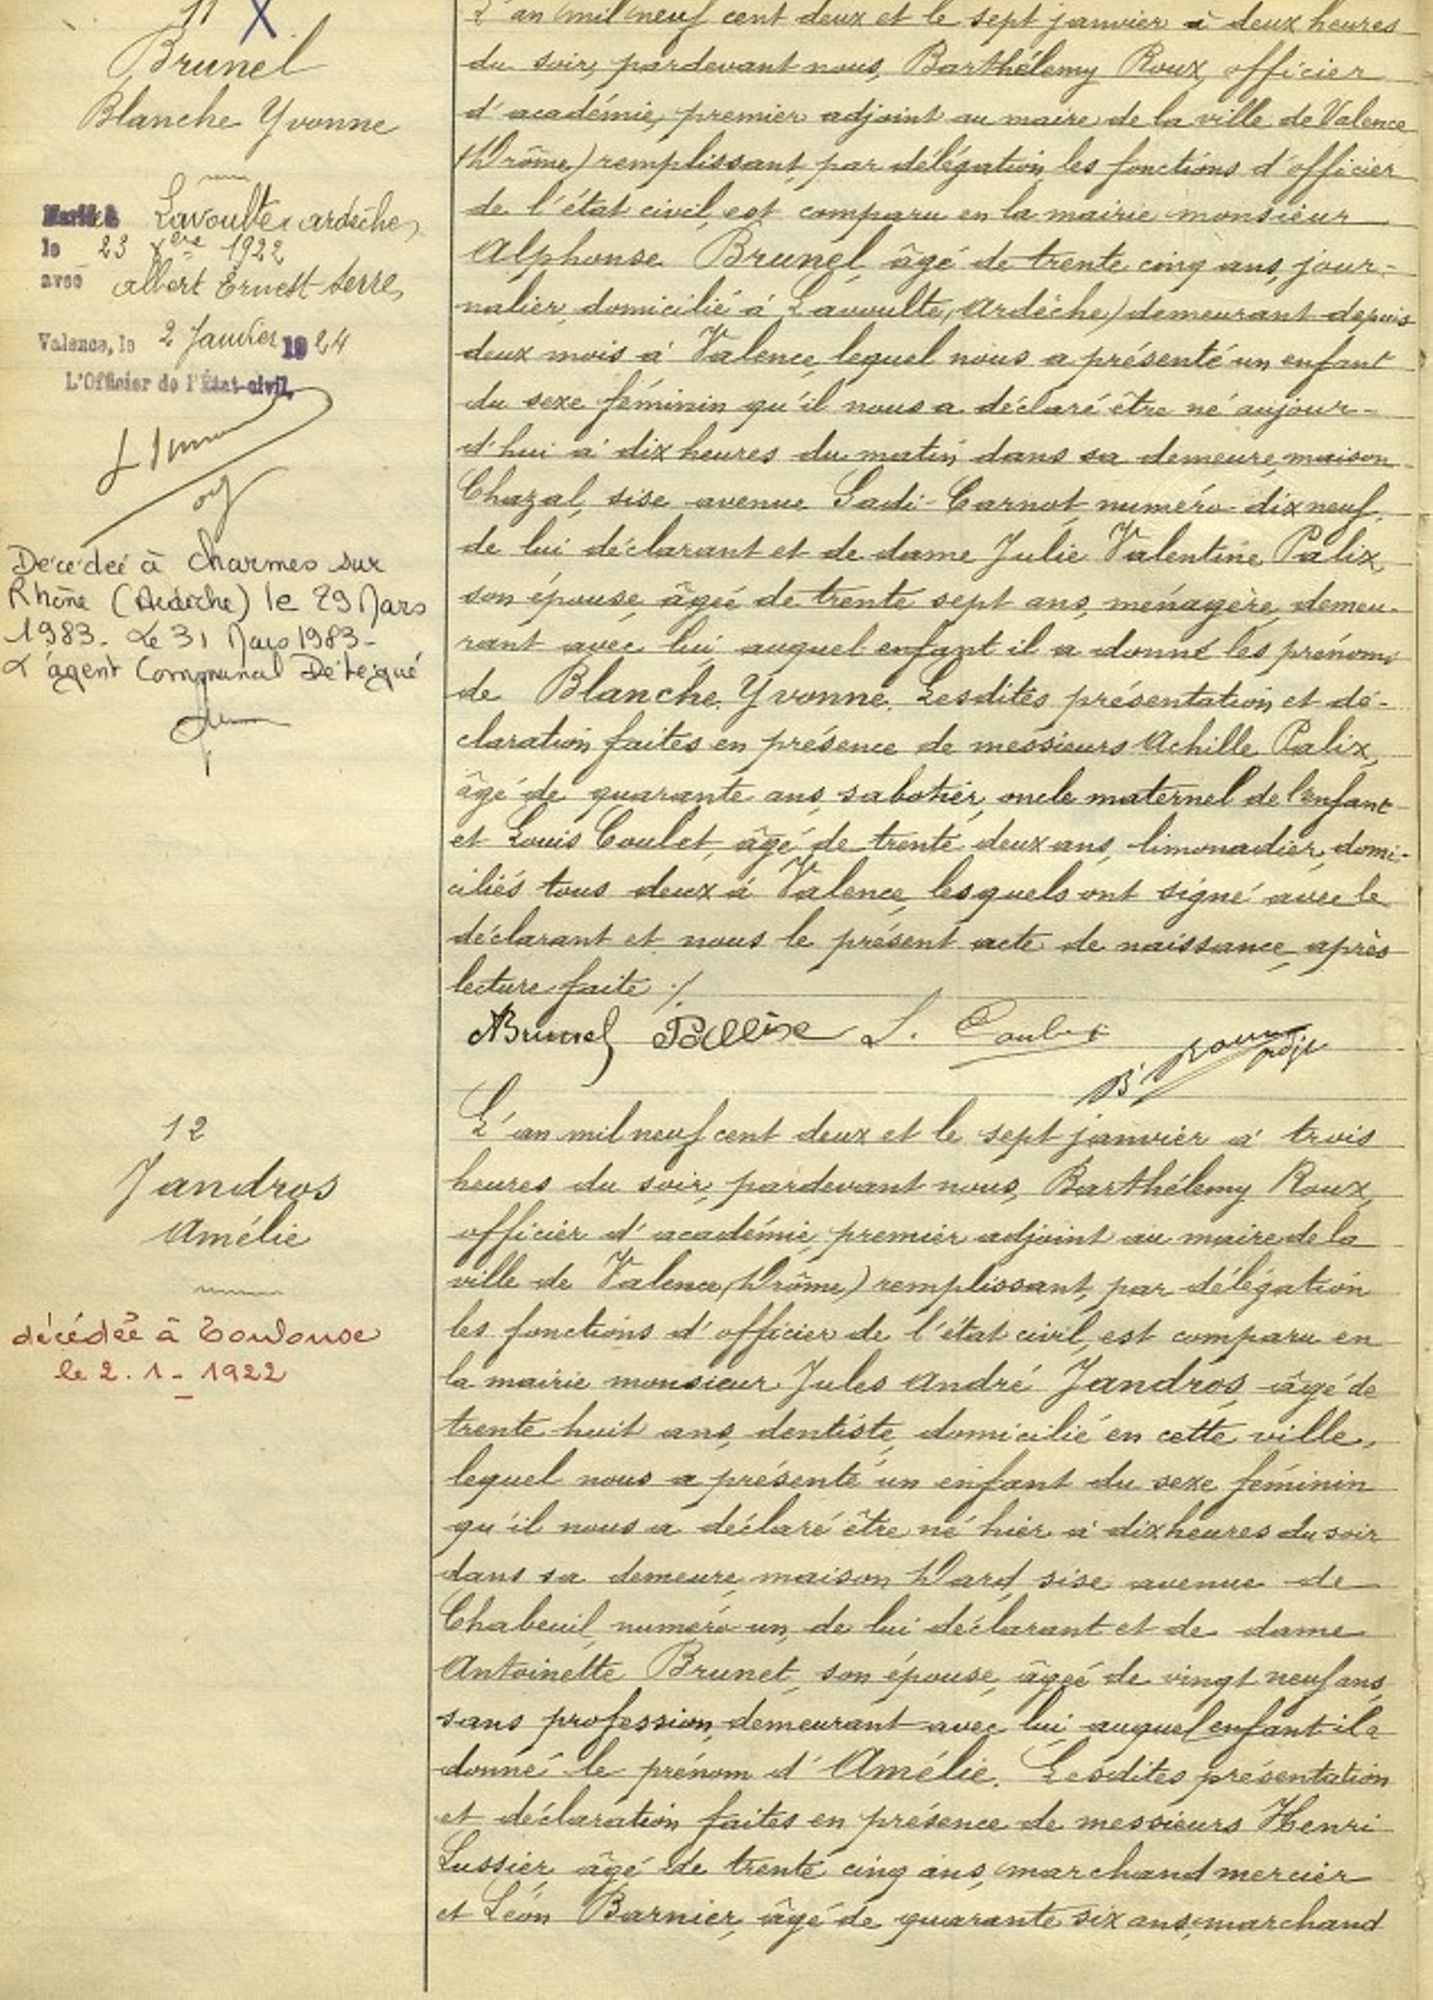 11 X
Brunel
Blanche Yvonne
Marié à Lavoulte (ardèche)
le 23 Xbre 1922
avec albert Ernest Serre
Valence, le 2 Janvier 1924
L'Officier de l'État-civil,
Décédée à Charmes sur
Rhône (Ardèche) le 29 Mars
1983. Le 31 Mars 1983 -
L'agent Communal Délégué
L'an mil neuf cent deux et le sept janvier à deux heures
du soir, pardevant nous, Barthélemy Roux, officier
d'académie, premier adjoint au maire de la ville de Valence
(Drôme) remplissant, par délégation, les fonctions d'officier
de l'état civil, est comparu en la mairie monsieur
Alphonse Brunel, âgé de trente cinq ans, jour-
nalier, domicilié à Lavoulte, (Ardèche) demeurant depuis
deux mois à Valence, lequel nous a présenté un enfant
du sexe féminin qu'il nous a déclaré être né aujour-
d'hui à dix heures du matin, dans sa demeure, maison
Chazal, sise avenue Sadi-Carnot, numéro dix neuf,
de lui déclarant et de dame Julie Valentine Palix,
son épouse, âgée de trente sept ans, ménagère, demeu-
rant avec lui, auquel enfant il a donné les prénoms
de Blanche Yvonne. Lesdites présentation et dé-
claration faites en présence de messieurs Achille Palix,
âgé de quarante ans, sabotier, oncle maternel de l'enfant
et Louis Coulet, âgé de trente deux ans, limonadier, domi-
ciliés tous deux à Valence, lesquels ont signé avec le
déclarant et nous le présent acte de naissance, après
lecture faite ./.
ABrunel Pallix L. Coulet
B. Roux adjt
12
Jandros
Amélie
décédée à Toulouse
le 2. 1 - 1922
L'an mil neuf cent deux et le sept janvier à trois
heures du soir, pardevant nous, Barthélemy Roux,
officier d'académie, premier adjoint au maire de la
ville de Valence, (Drôme) remplissant, par délégation
les fonctions d'officier de l'état civil, est comparu en
la mairie monsieur Jules André Jandros, âgé de
trente huit ans, dentiste, domicilié en cette ville,
lequel nous a présenté un enfant du sexe féminin
qu'il nous a déclaré être né hier à dix heures du soir
dans sa demeure, maison Dard, sise avenue de
Chabeuil, numéro un, de lui déclarant et de dame
Antoinette Brunet, son épouse, âgée de vingt neuf ans,
sans profession, demeurant avec lui, auquel enfant il a
donné le prénom d'Amélie. Lesdites présentation
et déclaration faites en présence de messieurs Henri
Lussier, âgé de trente cinq ans, marchand mercier
et Léon Barnier, âgé de quarante six ans, marchand